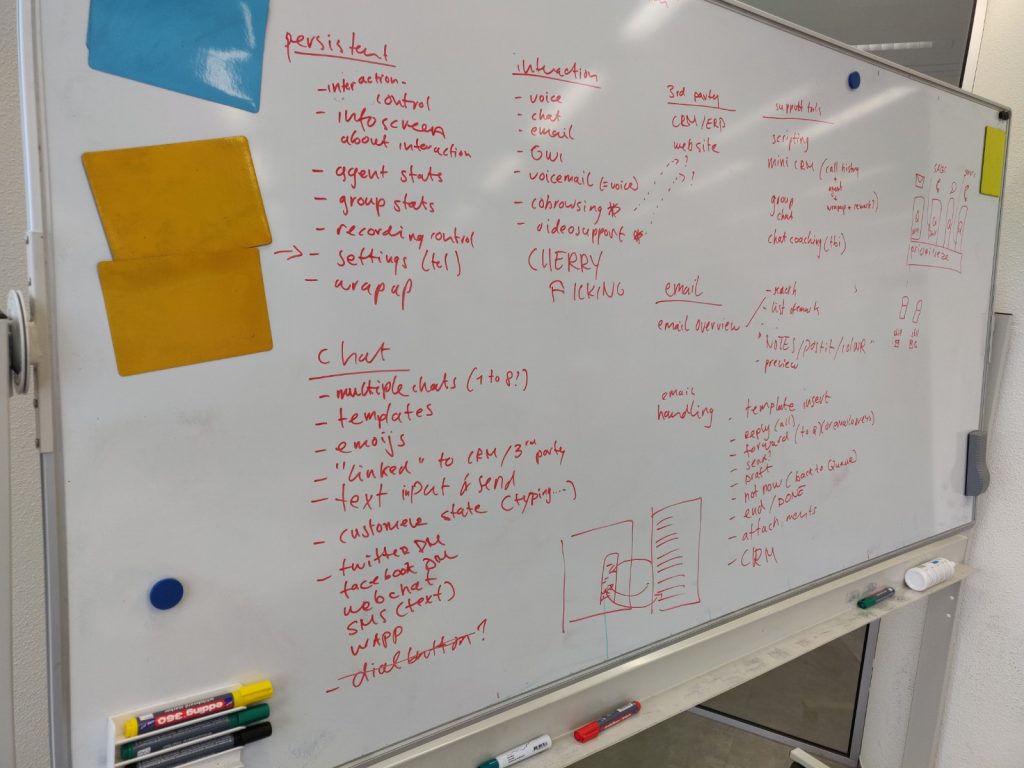 persistent
- interaction-
control
- infoscreen
about interaction
- agent stats
- group stats
- recording control
→ - settings (tel)
- wrap up
interaction
- voice
- chat
- email
- OWI
- voicemail (=voice)
- cobrowsing
- videosupport
CHERRY
PICKING
3rd party
CRM/ERP
website
?
?
support tools
scripting
mini CRM (call history
+
+
wrapup +
group
chat
chat coaching (tbi)
prioritize
chat
- multiple chats (1 to 8?)
- templates
- emoijs
- "linked" to CRM/3rd party
- text input & send
- customere state (typing....)
- twitter DM
facebook DM
webchat
SMS (text)
WAPP
- dial button?
email
email overview
- search
- list
"NOTES/postit/colour"
- preview
email
handling
- template insert
- reply (all)
- forward (to
- send
- draft
- not now (back to Queue)
- end/DONE
- attachments
- CRM
edding 360